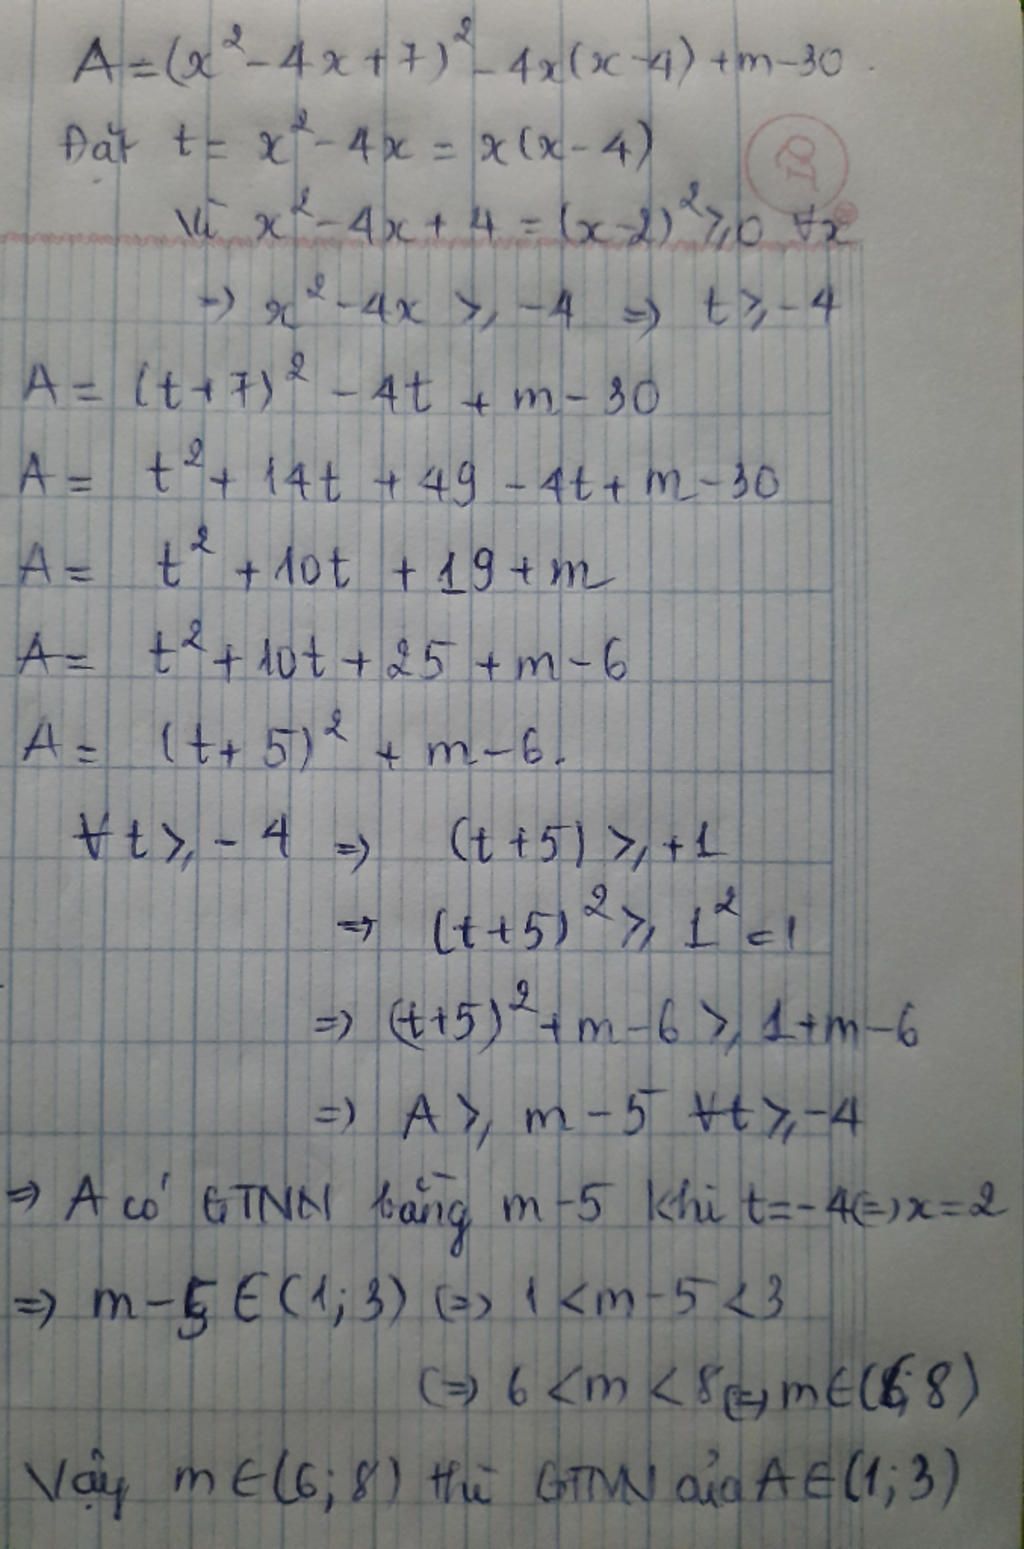 A = (x² - 4x + 7)² - 4x(x - 4) + m - 30.
Đặt t = x² - 4x = x(x - 4)
Vì x² - 4x + 4 = (x - 2)² ⩾ 0 ∀x
=> x² - 4x ⩾ -4 => t ⩾ -4
A = (t + 7)² - 4t + m - 30
A = t² + 14t + 49 - 4t + m - 30
A = t² + 10t + 19 + m
A = t² + 10t + 25 + m - 6
A = (t + 5)² + m - 6.
∀t ⩾ -4 => (t + 5) ⩾ +1
=> (t + 5)² ⩾ 1² = 1
=> (t + 5)² + m - 6 ⩾ 1 + m - 6
=> A ⩾ m - 5 ∀t ⩾ -4
=> A có GTNN bằng m - 5 khi t = -4 (=) x = 2
=> m - 5 ∈ (1; 3) (=> 1 < m - 5 < 3
(=> 6 < m < 8 (=> m ∈ (6; 8)
Vậy m ∈ (6; 8) thì GTNN của A ∈ (1; 3)